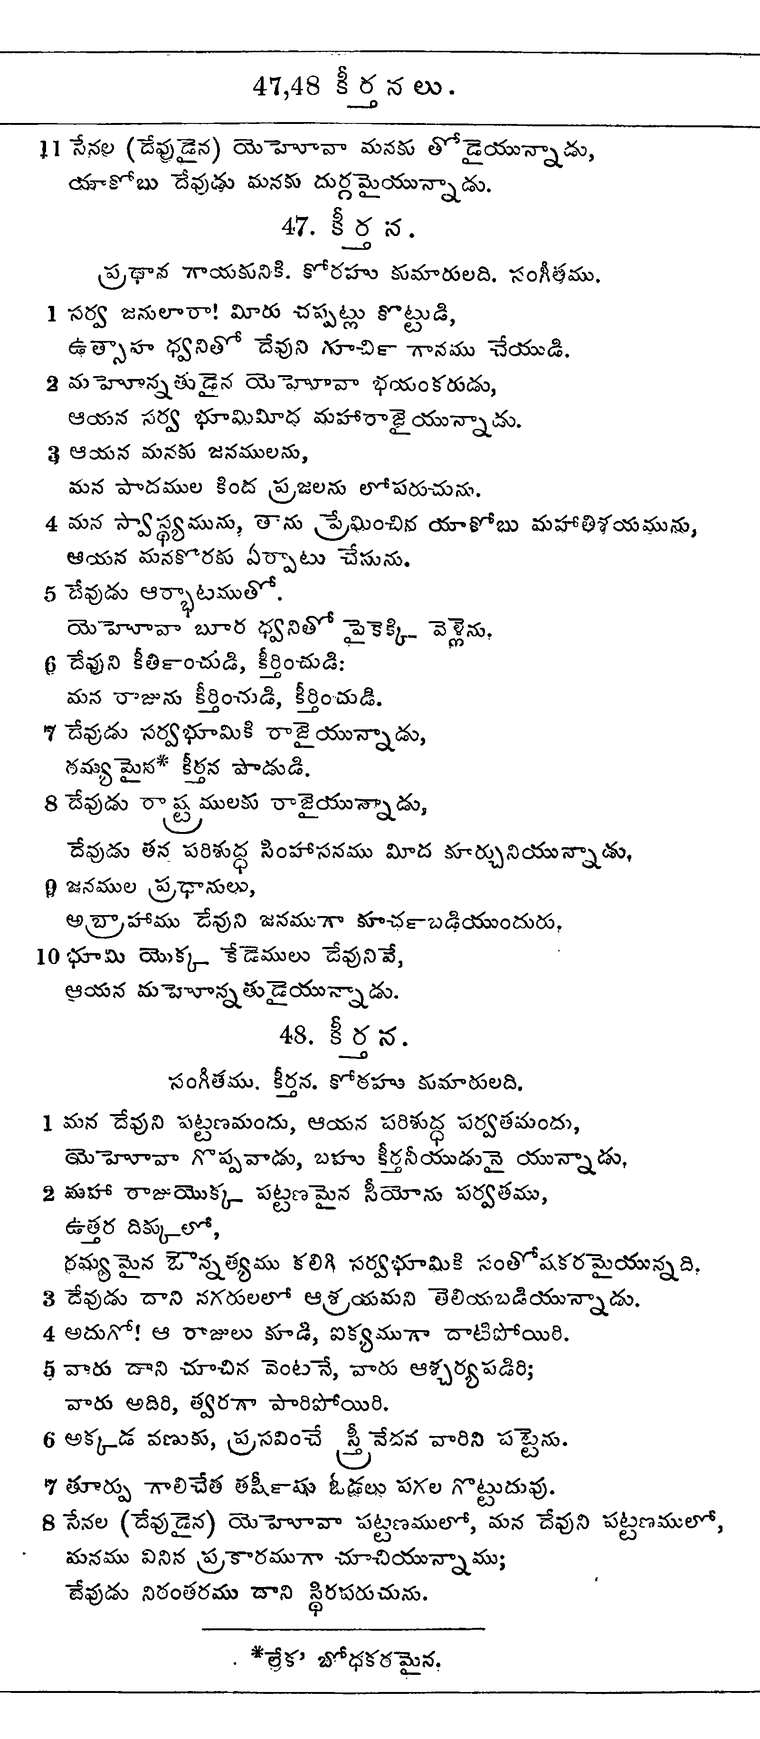 47,48 కీర్తనలు.
11 సేనల (దేవుడైన) యెహోవా మనకు తోడైయున్నాడు,
యాకోబు దేవుడు మనకు దుర్గమైయున్నాడు.
47. కీర్తన.
ప్రథాన గాయకునికి. కోరహు కుమారులది. సంగీతము.
1 సర్వ జనులారా! మీరు చప్పట్లు కొట్టుడి,
ఉత్సాహ ధ్వనితో దేవుని గూచిɼ గానము చేయుడి.
2 మహోన్నతుడైన యెహోవా భయంకరుడు,
ఆయన సర్వ భూమిమీధ మహారాజైయున్నాడు.
3 ఆయన మనకు జనములను,
మన పాదముల కింద ప్రజలను లోపరుచును.
4 మన స్వాస్థ్యమును, తాను ప్రేమించిన యాకోబు మహాతిశయమును,
ఆయన మనకొరకు ఏర్పాటు చేసును.
5 దేవుడు ఆర్భాటముతో.
యెహోవా బూర ధ్వనితో పైకెక్కి వెళ్లెను.
6 దేవుని కీతిɼంచుడి, కీర్తించుడి:
మన రాజును కీర్తించుడి, కీర్తించుడి.
7 దేవుడు సర్వభూమికి రాజైయున్నాడు,
రమ్యమైన* కీర్తన పాడుడి.
8 దేవుడు రాష్ట్రములకు రాజైయున్నాడు,
దేవుడు తన పరిశుద్ధ సింహాసనము మీద కూర్చునియున్నాడు.
9 జనముల ప్రధానులు,
అబ్రాహాము దేవుని జనముగా కూచɼబడియుందురు.
10 భూమి యొక్క కేడెములు దేవునివే,
ఆయన మహోన్నతుడైయున్నాడు.
48. కీర్తన.
సంగీతము. కీర్తన. కోరహు కుమారులది.
1 మన దేవుని పట్టణమందు, ఆయన పరిశుద్ధ పర్వతమందు,
యెహోవా గొప్పవాడు, బహు కీర్తనీయుడునై యున్నాడు.
2 మహా రాజుయొక్క పట్టణమైన సీయోను పర్వతము,
ఉత్తర దిక్కులో,
రమ్యమైన ఔన్నత్యము కలిగి సర్వభూమికి సంతోషకరమైయున్నది.
3 దేవుడు దాని నగరులలో ఆశ్రయమని తెలియబడియున్నాడు.
4 అదుగో! ఆ రాజులు కూడి, ఐక్యముగా దాటిపోయిరి.
5 వారు దాని చూచిన వెంటనే, వారు ఆశ్చర్యపడిరి;
వారు అదిరి, త్వరగా పారిపోయిరి.
6 అక్కడ వణుకు, ప్రసవించే స్త్రీవేదన వారిని పట్టెను.
7 తూర్పు గాలిచేత తషీɼషు ఓడలు పగల గొట్టుదువు.
8 సేనల (దేవుడైన) యెహోవా పట్టణములో, మన దేవుని పట్టణములో,
మనము వినిన ప్రకారముగా చూచియున్నాము;
దేవుడు నిరంతరము దాని స్థిరపరుచును.
*లేక' బోధకరమైన.